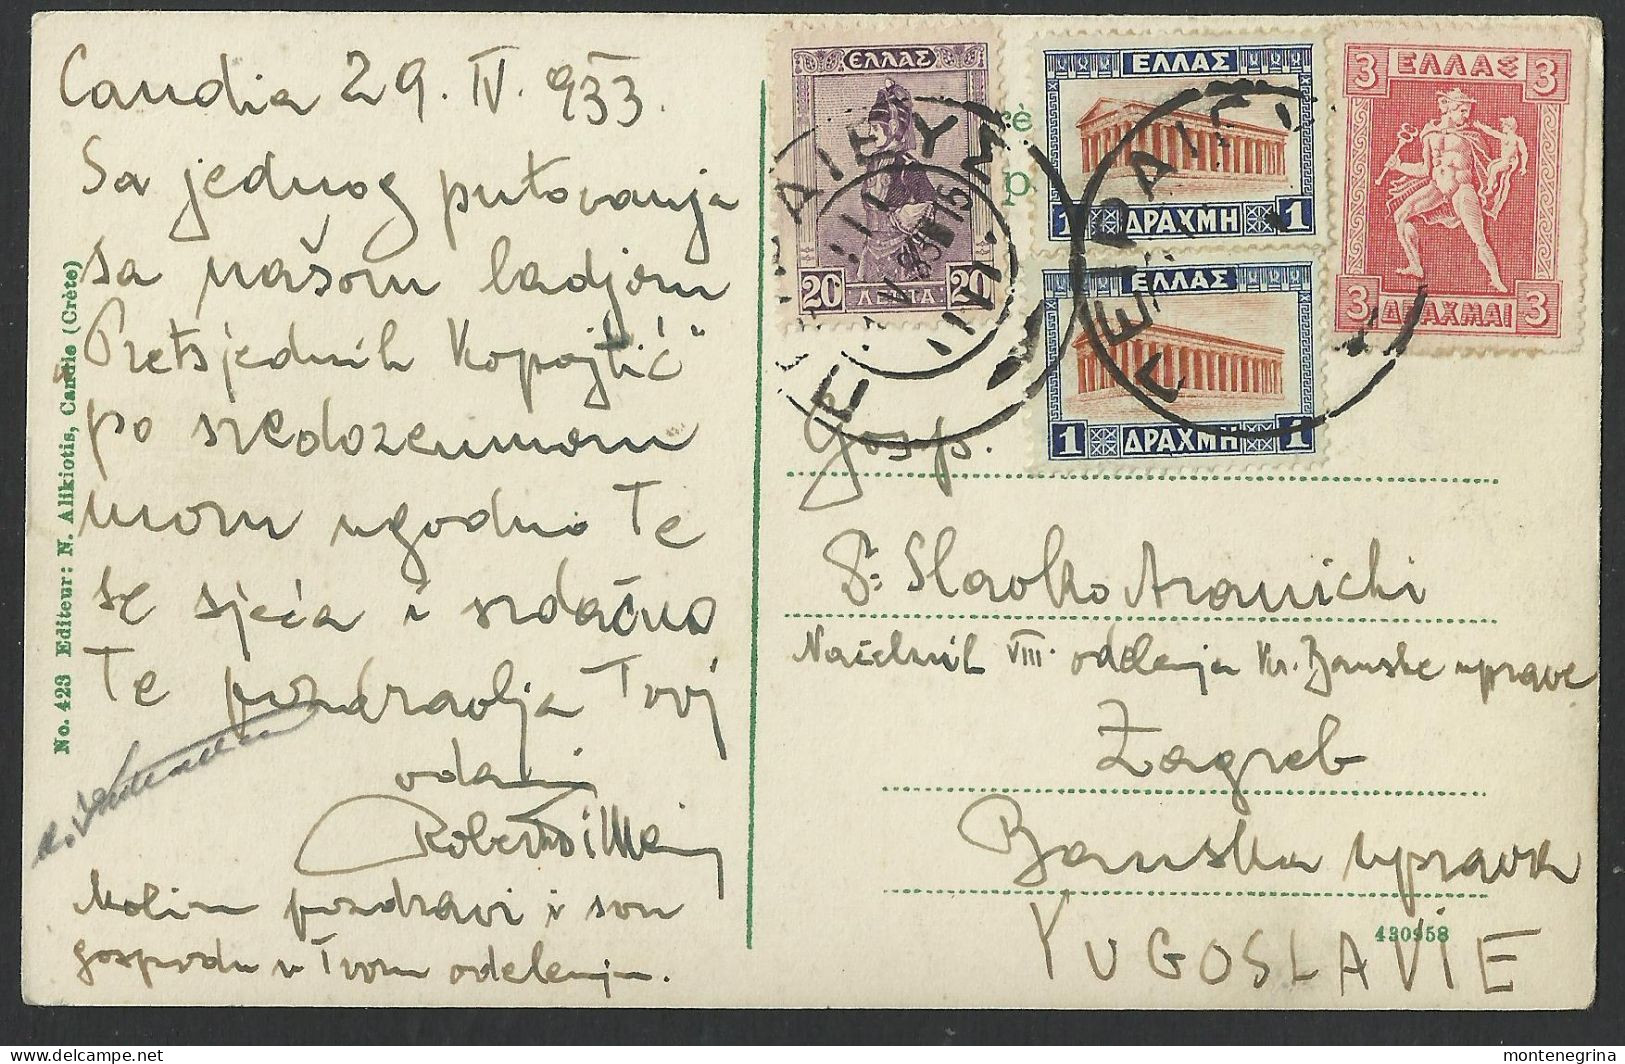 Candia 29. IV. 933.
Sa jednog putovanja
sa našom ladjom
Pretsjednik Kopajtić"
po sredozemnom
moru ugodno Te
se sjeća i srdačno
Te pozdravlja Tvoj
odani
Robert
Molim pozdravi i svu
gospodu u Tvom odelenju.
No. 423 Editeur: N. Alikiotis, Candie (Crète)
ΕΛΛΑΣ
20 ΛΕΠΤΑ 20
ΕΛΛΑΣ
1 ΔΡΑΧΜΗ 1
ΕΛΛΑΣ
1 ΔΡΑΧΜΗ 1
3 ΕΛΛΑΣ 3
3 ΔΡΑΧΜΑΙ 3
Gosp.
Dr Slavko Aranicki
Načelnik VIII. odelenja Kr. Banske uprave
Zagreb
Banska uprava
YUGOSLAVIE
430958
montenegrina